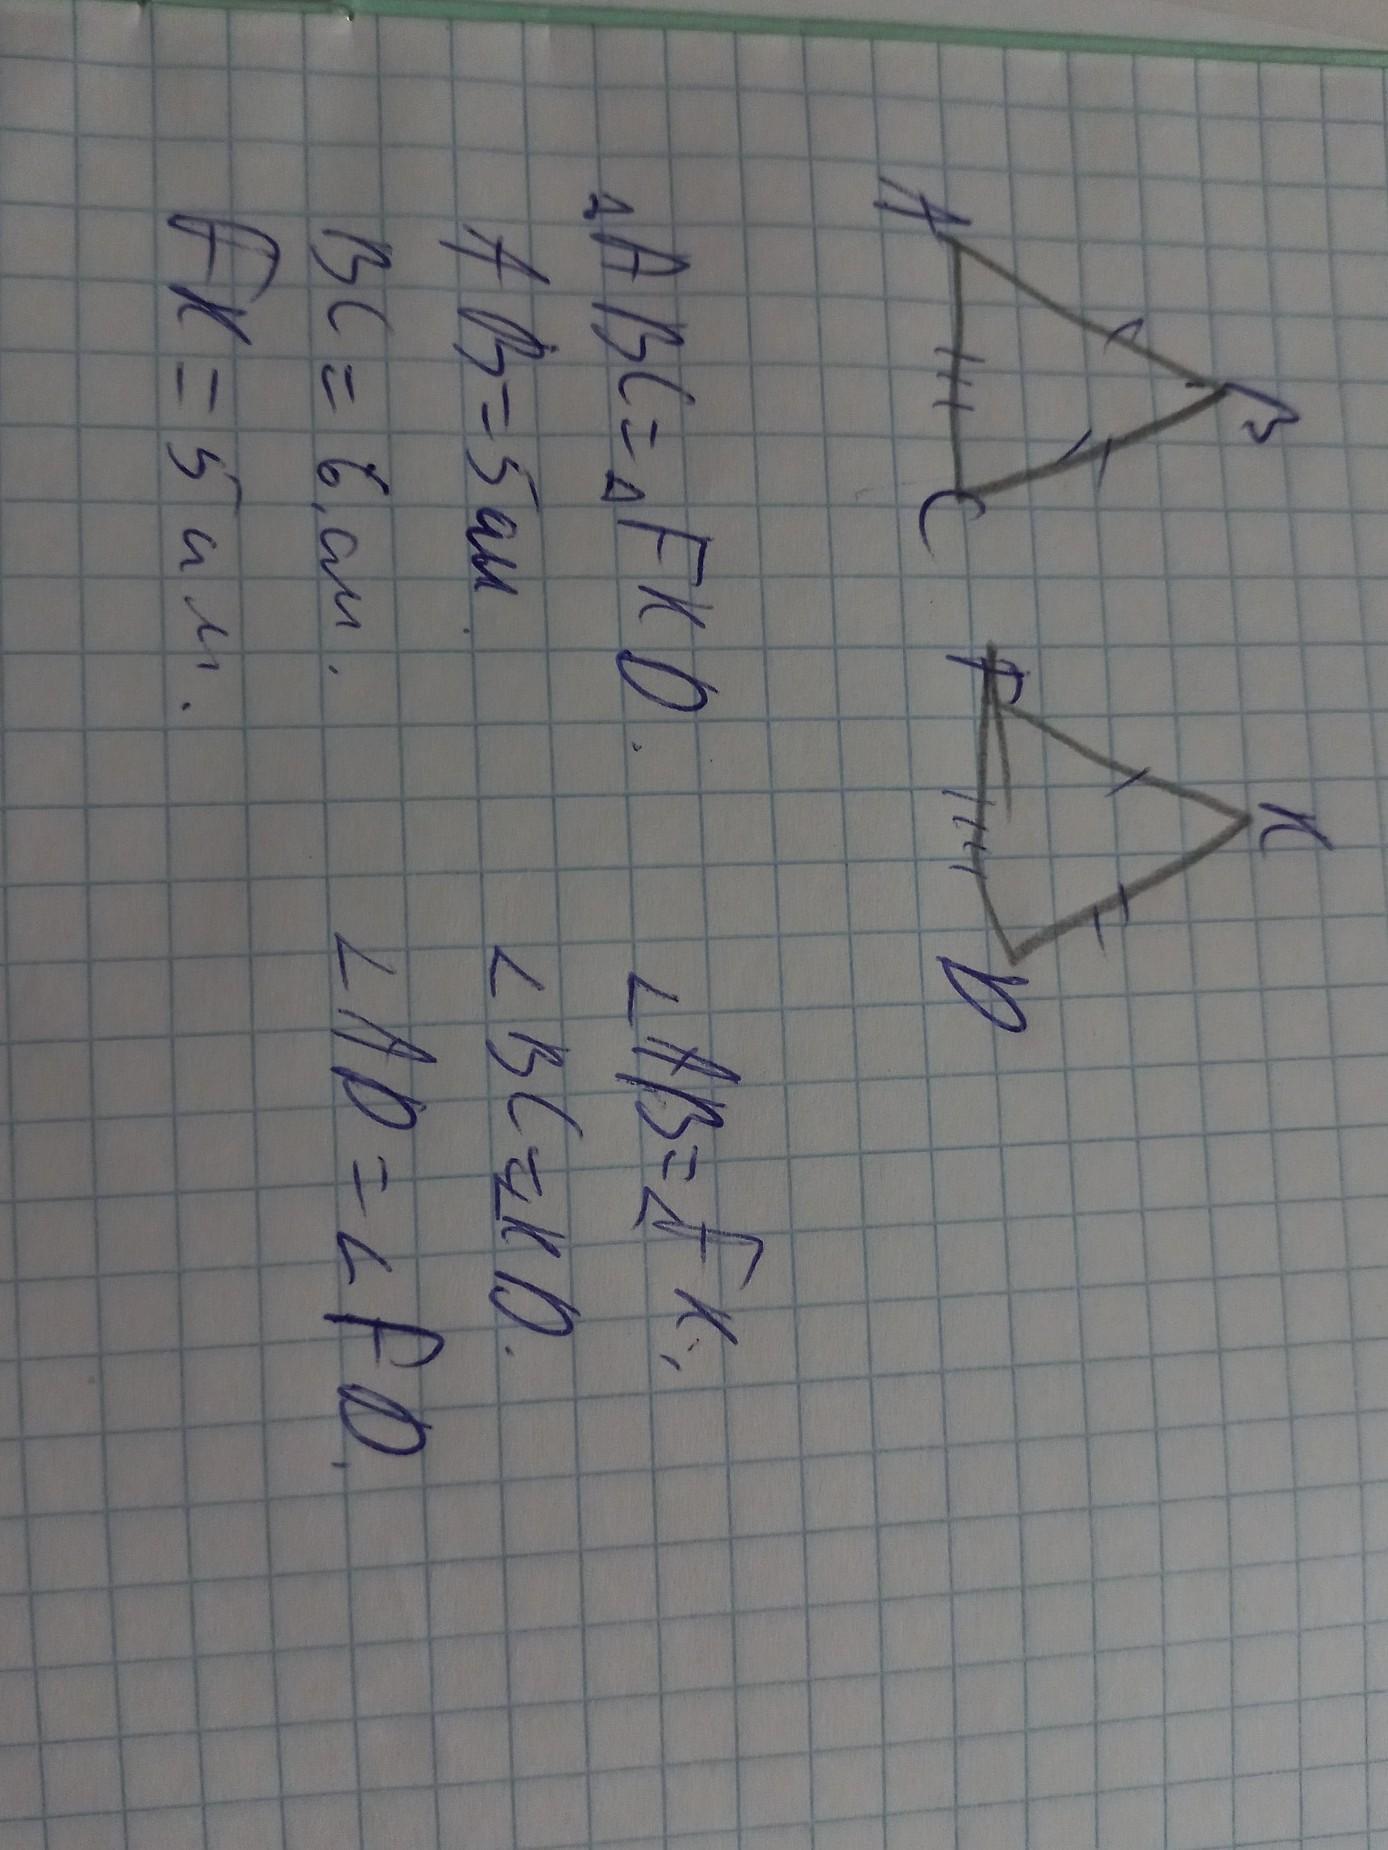 B
K
A
C
F
D
△ABC=△FKD.
AB=5см.
BC=6см.
FK=5см.
∠AB=∠FK.
∠BC=∠KD.
∠AD=∠FD.